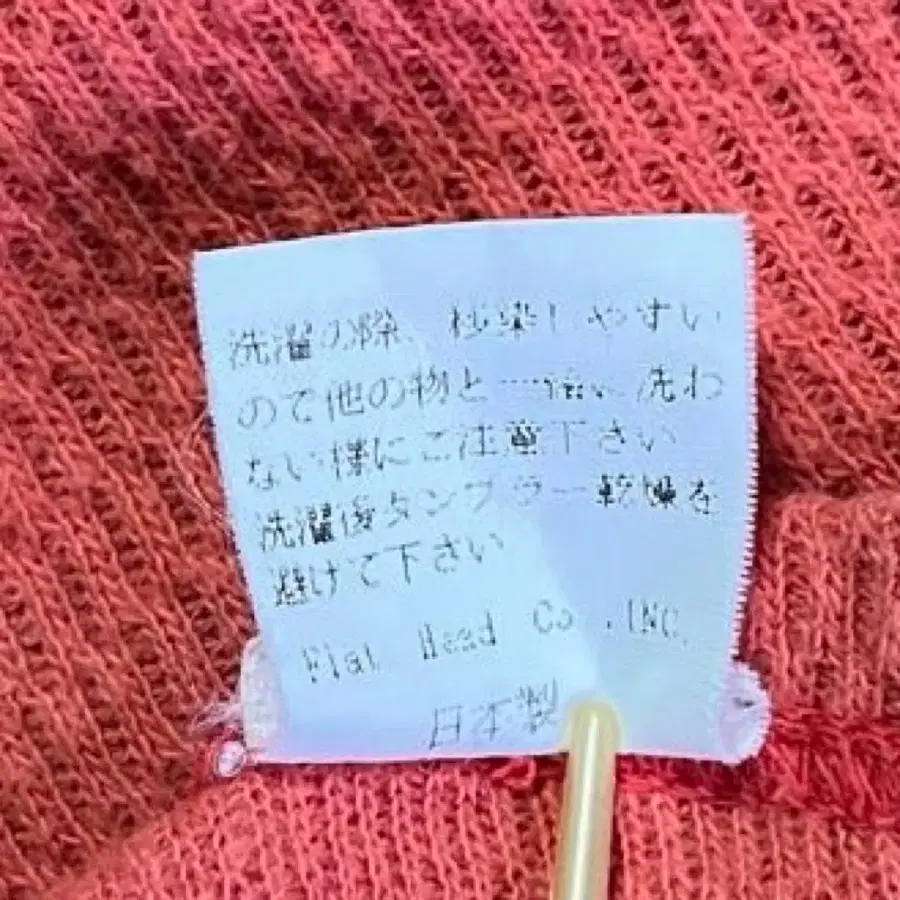 洗濯の際、移染しやすい
ので他の物と一緒に洗わ
ない様にご注意下さい
洗濯後タンブラー乾燥を
避けて下さい
Flat Head Co .INC.
日本製